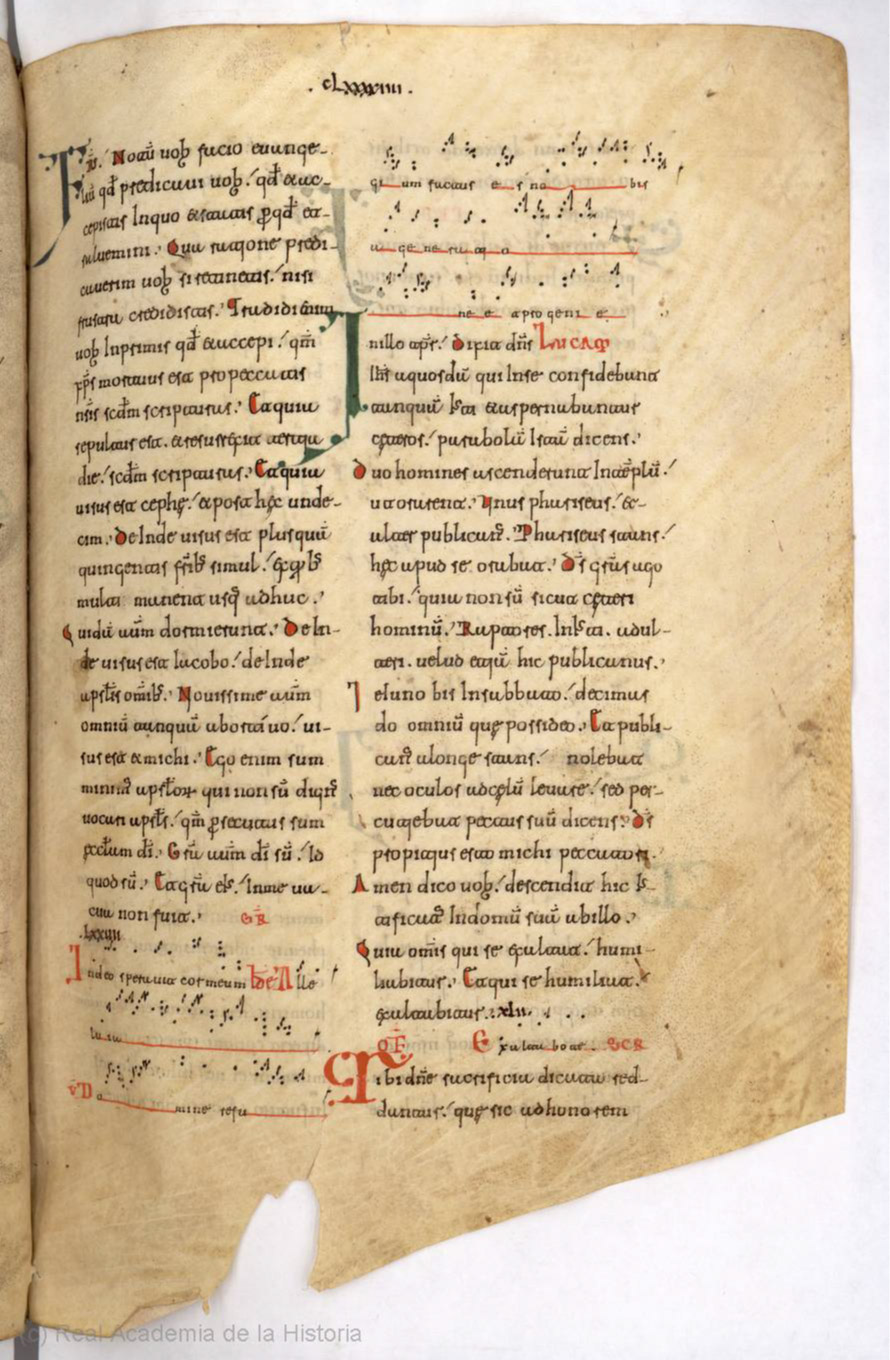 . cLxxxviiii .
F̅r̅s̅. Notu̅ uob̅ facio euange-
liu̅ qd̅ predicaui uob̅. qd̅ & ac-
cepistis In quo & statis p̱ qd̅ et
saluemini. Qua ratione predi-
cauerim uob̅ si tenetis. nisi
frustra credidistis. Tradidi enim
uob̅ Inprimis qd̅ & accepi. qm̅
xp̅s mortuus est pro peccatis
nr̅is scd̅m scripturas. Et quia
sepultus est. & resurrexit tertia
die. scd̅m scripturas. Et quia
uisus est cephę. & post hęc unde-
cim. deInde uisus est plusqua̅
quingentis fr̅ib; simul. ex q̅b;
multi manent usq; adhuc.
Quida̅ aut̅m dormierunt. deIn-
de uisus est Iacobo. deInde
apsl̅is omib;. Nouissime aut̅m
omniu̅ tanqua̅ abortiuo. ui-
sus est & michi. Ego enim sum
minim̅ apsl̅or̅ qui non su̅ dign̅
uocari apsl̅s. qm̅ p̱secutus sum
eccl̅am di̅. Gra̅ aut̅m di̅ su̅. Id
quod su̅. Et gra̅ eI̅s. In me ua-
cua non fuit. GR̅
.Lxxiiii
In deo sperauit cor meum de All̅e
luia
V̅ Do mine refu
gi um factus e s no bis
a ge ne ra ti o
ne e a pro geni e
In illo tp̅r. dixit dn̅s LuCAS
Ih̅s a quosda̅ qui In se confidebant
tanqua̅ Is̅ti & aspernabantur
cęteros. parabola̅ Ista̅ dicens.
Duo homines ascenderunt In te̅plu̅.
ut orarent. Unus phariseus. &
alter publican̅. Phariseus stans.
hęc apud se orabat. ds̅ gr̅as ago
tibi. quia non su̅ sicut cęteri
hominu̅. Raptores. InIs̅ti. adul-
teri. uelud etia̅ hic publicanus.
Ieiuno bis In sabbato. decimas
do omniu̅ quę possideo. Et publi-
can̅ alonge stans. nolebat
nec oculos ad cęlu̅ leuare. sed per-
cutiebat pectus suu̅ dicens. ds̅
propitius esto michi peccatori.
Amen dico uob̅. descendit hic Is̅-
tificat̅ In domu̅ sua̅ ab illo.
Quia omis qui se exaltat. humi-
liabitur. Et qui se humiliat.
exaltabitur. .xlii.
OF̅ Exaltabo te. SCR̅
Tibi dn̅e sacrificia dicata red-
dantur. quę sic ad honorem
(c) Real Academia de la Historia